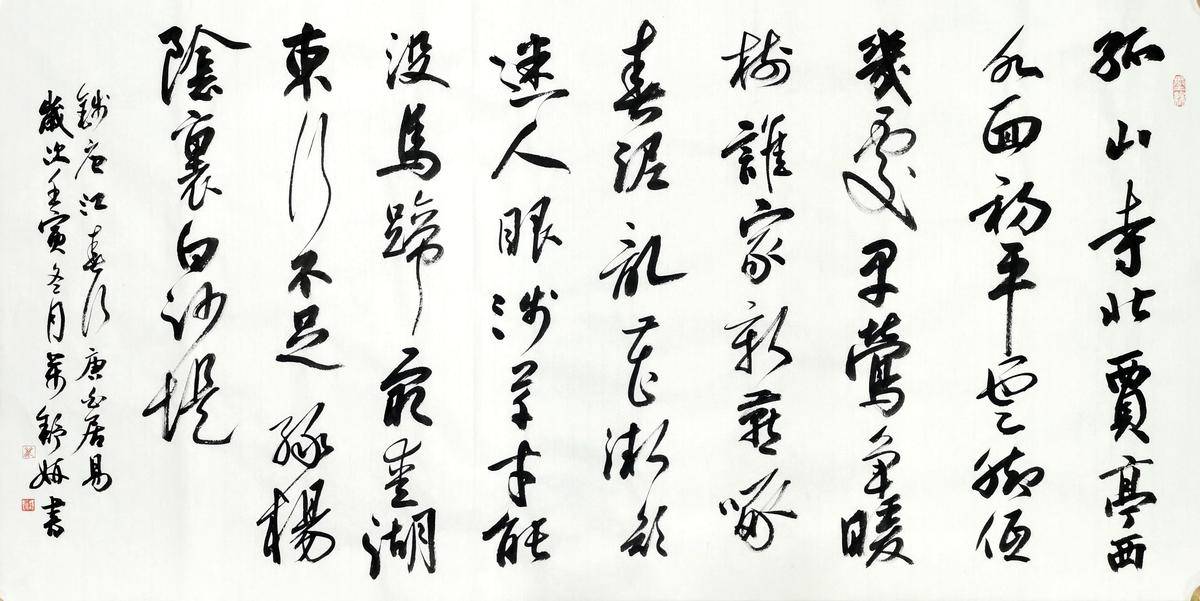 孤山寺北賈亭西
水面初平雲腳低
幾處早鶯爭暖
樹誰家新燕啄
春泥亂花漸欲
迷人眼淺草才能
没馬蹄最愛湖
東行不足綠楊
陰裏白沙堤
錢唐江春行 唐白居易
歲次壬寅冬月 舒 書